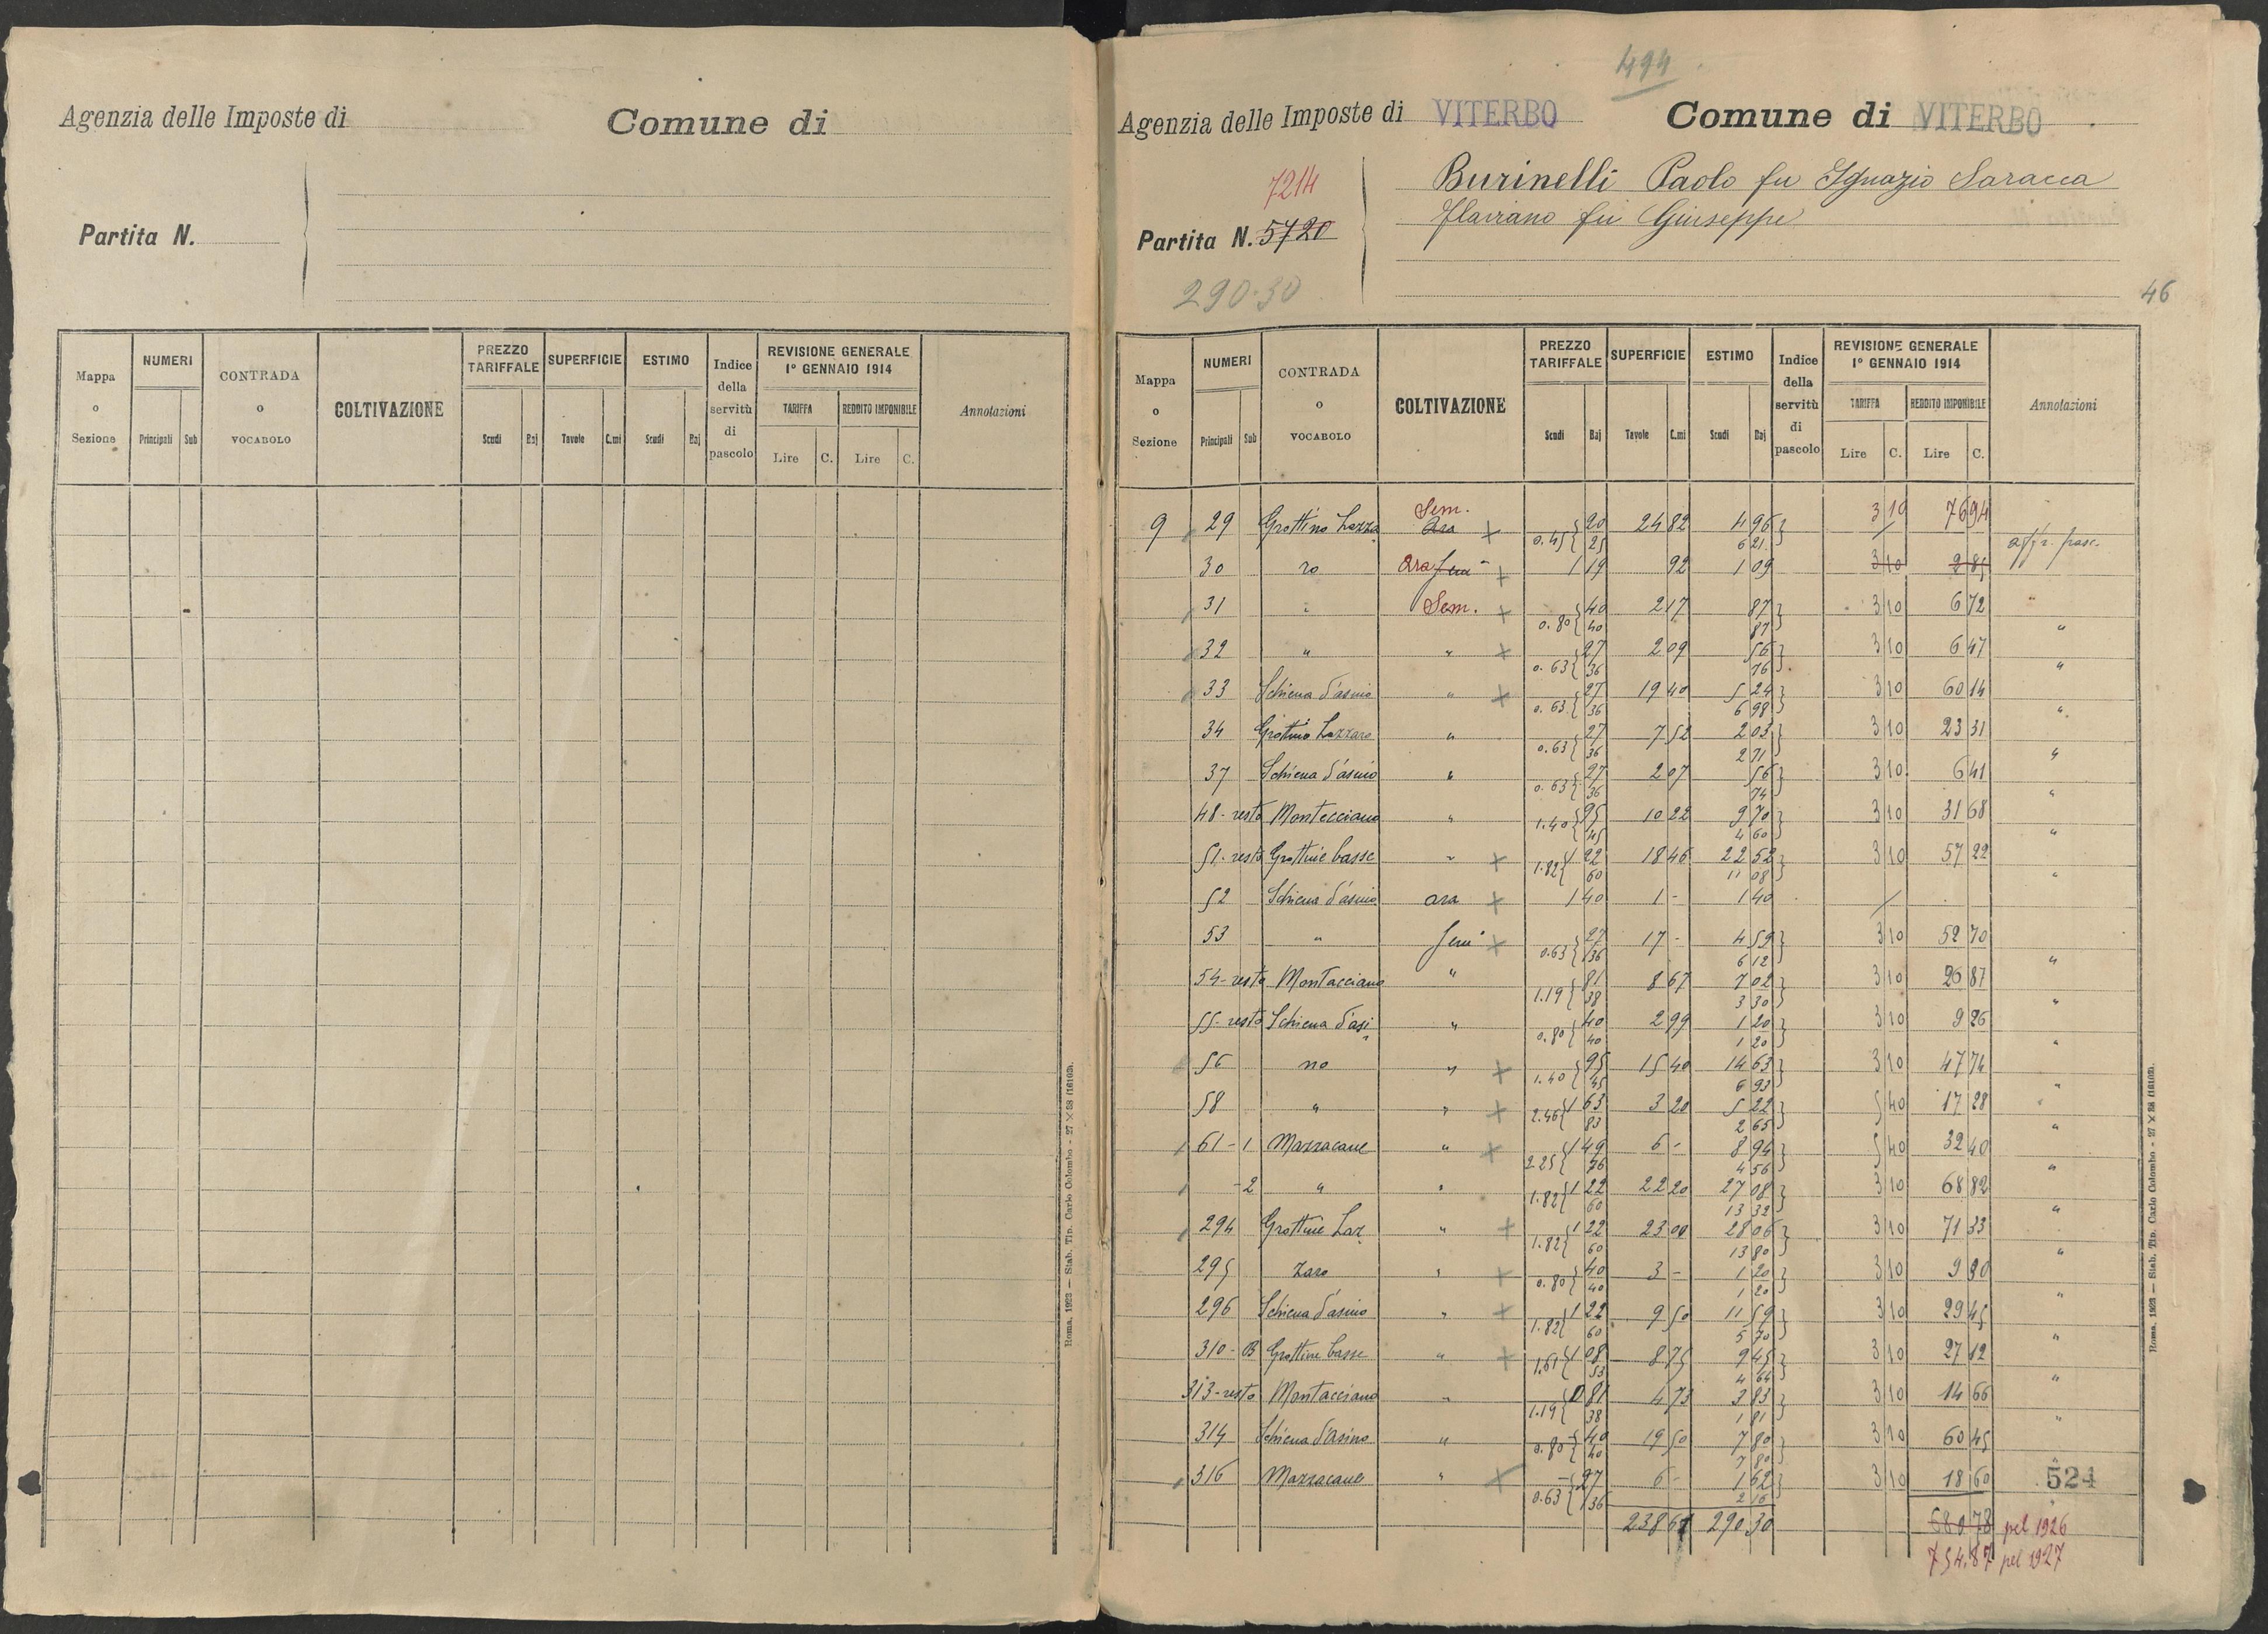 Agenzia delle Imposte di
Comune di
Partita N.
Mappa o Sezione
NUMERI
Principali Sub
CONTRADA o VOCABOLO
COLTIVAZIONE
PREZZO TARIFFALE
Scudi Baj
SUPERFICIE
Tavole C.mi
ESTIMO
Scudi Baj
Indice della servitù di pascolo
REVISIONE GENERALE
1° GENNAIO 1914
TARIFFA REDDITO IMPONIBILE
Lire C. Lire C.
Annotazioni
Roma, 1923 — Stab. Tip. Carlo Colombo - 27 × 38 (16102).
494
Agenzia delle Imposte di VITERBO
Comune di VITERBO
7214
Partita N. 5720
290.30
Burinelli Paolo fu Ignazio Saracca
Flaviano fu Giuseppe
46
Mappa o Sezione
NUMERI
Principali Sub
CONTRADA o VOCABOLO
COLTIVAZIONE
PREZZO TARIFFALE
Scudi Baj
SUPERFICIE
Tavole C.mi
ESTIMO
Scudi Baj
Indice della servitù di pascolo
REVISIONE GENERALE
1° GENNAIO 1914
TARIFFA REDDITO IMPONIBILE
Lire C. Lire C.
Annotazioni
Sem.
9 29 Grottino Lazza Ara 20 24 82 4 96 3 10 76 94
0.45 25 6 21 affr. pasc.
30 ro Ara Sem 1 19 92 1 09 3 10 2 85
31 " Sem. 40 2 17 87 3 10 6 72 "
0.80 40 87
32 " " 27 2 09 56 3 10 6 47 "
0.63 36 76
33 Schiena d'asino " 27 19 40 5 24 3 10 60 14 "
0.63 36 6 98
34 Grottino Lazzaro " 27 7 52 2 03 3 10 23 31 "
0.63 36 2 71
37 Schiena d'asino " 27 2 07 56 3 10 6 41 "
0.63 36 74
48 - resto Montecciano " 95 10 22 9 70 3 10 31 68 "
1.40 45 4 60
51 - resto Grottine basse " 1 22 18 46 22 52 3 10 57 22 "
1.82 60 11 08
52 Schiena d'asino ara 1 40 1 - 1 40
53 " Sem 27 17 - 4 59 3 10 52 70 "
0.63 36 6 12
54 - resto Montacciano " 81 8 67 7 02 3 10 26 87 "
1.19 38 3 30
55 - resto Schiena d'asi " 40 2 99 1 20 3 10 9 26 "
0.80 40 1 20
56 no " 95 15 40 14 63 3 10 47 74 "
1.40 45 6 93
58 " " 1 63 3 20 5 22 5 40 17 28 "
2.46 83 2 65
61 - 1 Mazzacane " 1 49 6 - 8 94 5 40 32 40 "
2.25 76 4 56
- 2 " " 1 22 22 20 27 08 3 10 68 82 "
1.82 60 13 32
294 Grottine Laz " 1 22 23 00 28 06 3 10 71 33 "
1.82 60 13 80
295 zaro " 40 3 - 1 20 3 10 9 30 "
0.80 40 1 20
296 Schiena d'asino " 1 22 9 50 11 59 3 10 29 45 "
1.82 60 5 70
310 - B Grottine basse " 1 08 8 75 9 45 3 10 27 12 "
1.61 53 4 64
313 - resto Montacciano " 0 81 4 73 3 83 3 10 14 66 "
1.19 38 1 81
314 Schiena d'asino " 40 19 50 7 80 3 10 60 45
0.80 40 7 80
316 Mazzacane " 27 6 - 1 62 3 10 18 60 524
0.63 36 2 16
238 61 290 30 680 78 pel 1926
754.87 pel 1927
Roma, 1923 — Stab. Tip. Carlo Colombo - 27 × 38 (16102).